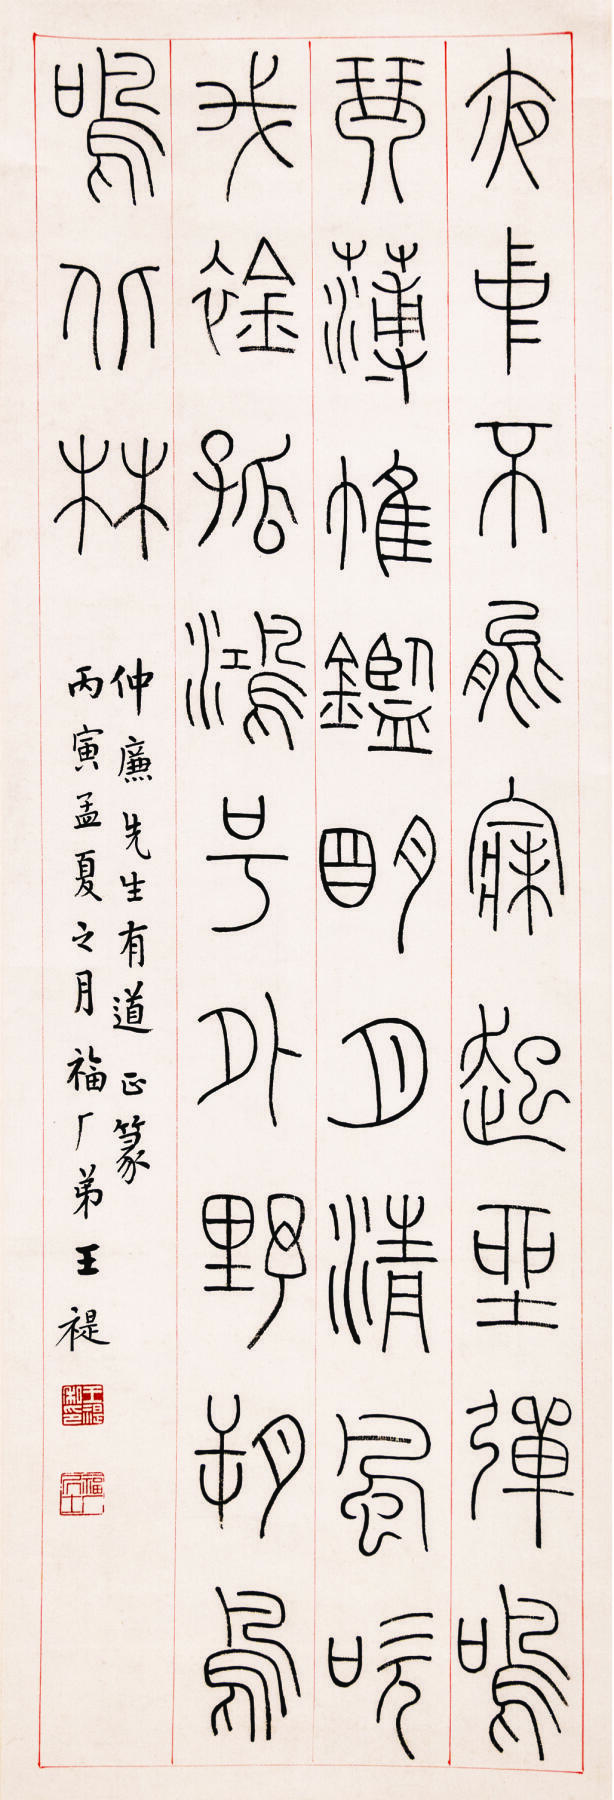 夜中不能寐起坐彈鳴
琴薄帷鑑明月清風吹
我衿孤鴻号外野朔鳥
鳴北林
仲廉先生有道正篆
丙寅孟夏之月福厂弟王禔
王禔私印
福厂居士